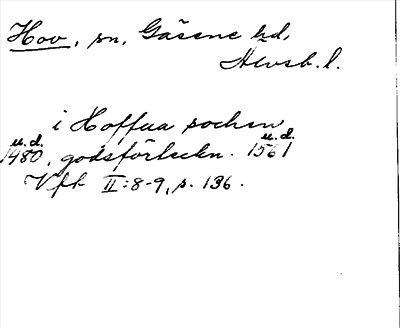 Hov, sn, Gäsene hd,
Älvsb. l.
i Hoffua sochen
u.d. u.d.
1480, godsförteckn. 1561
Vfk II:8-9, s. 136.